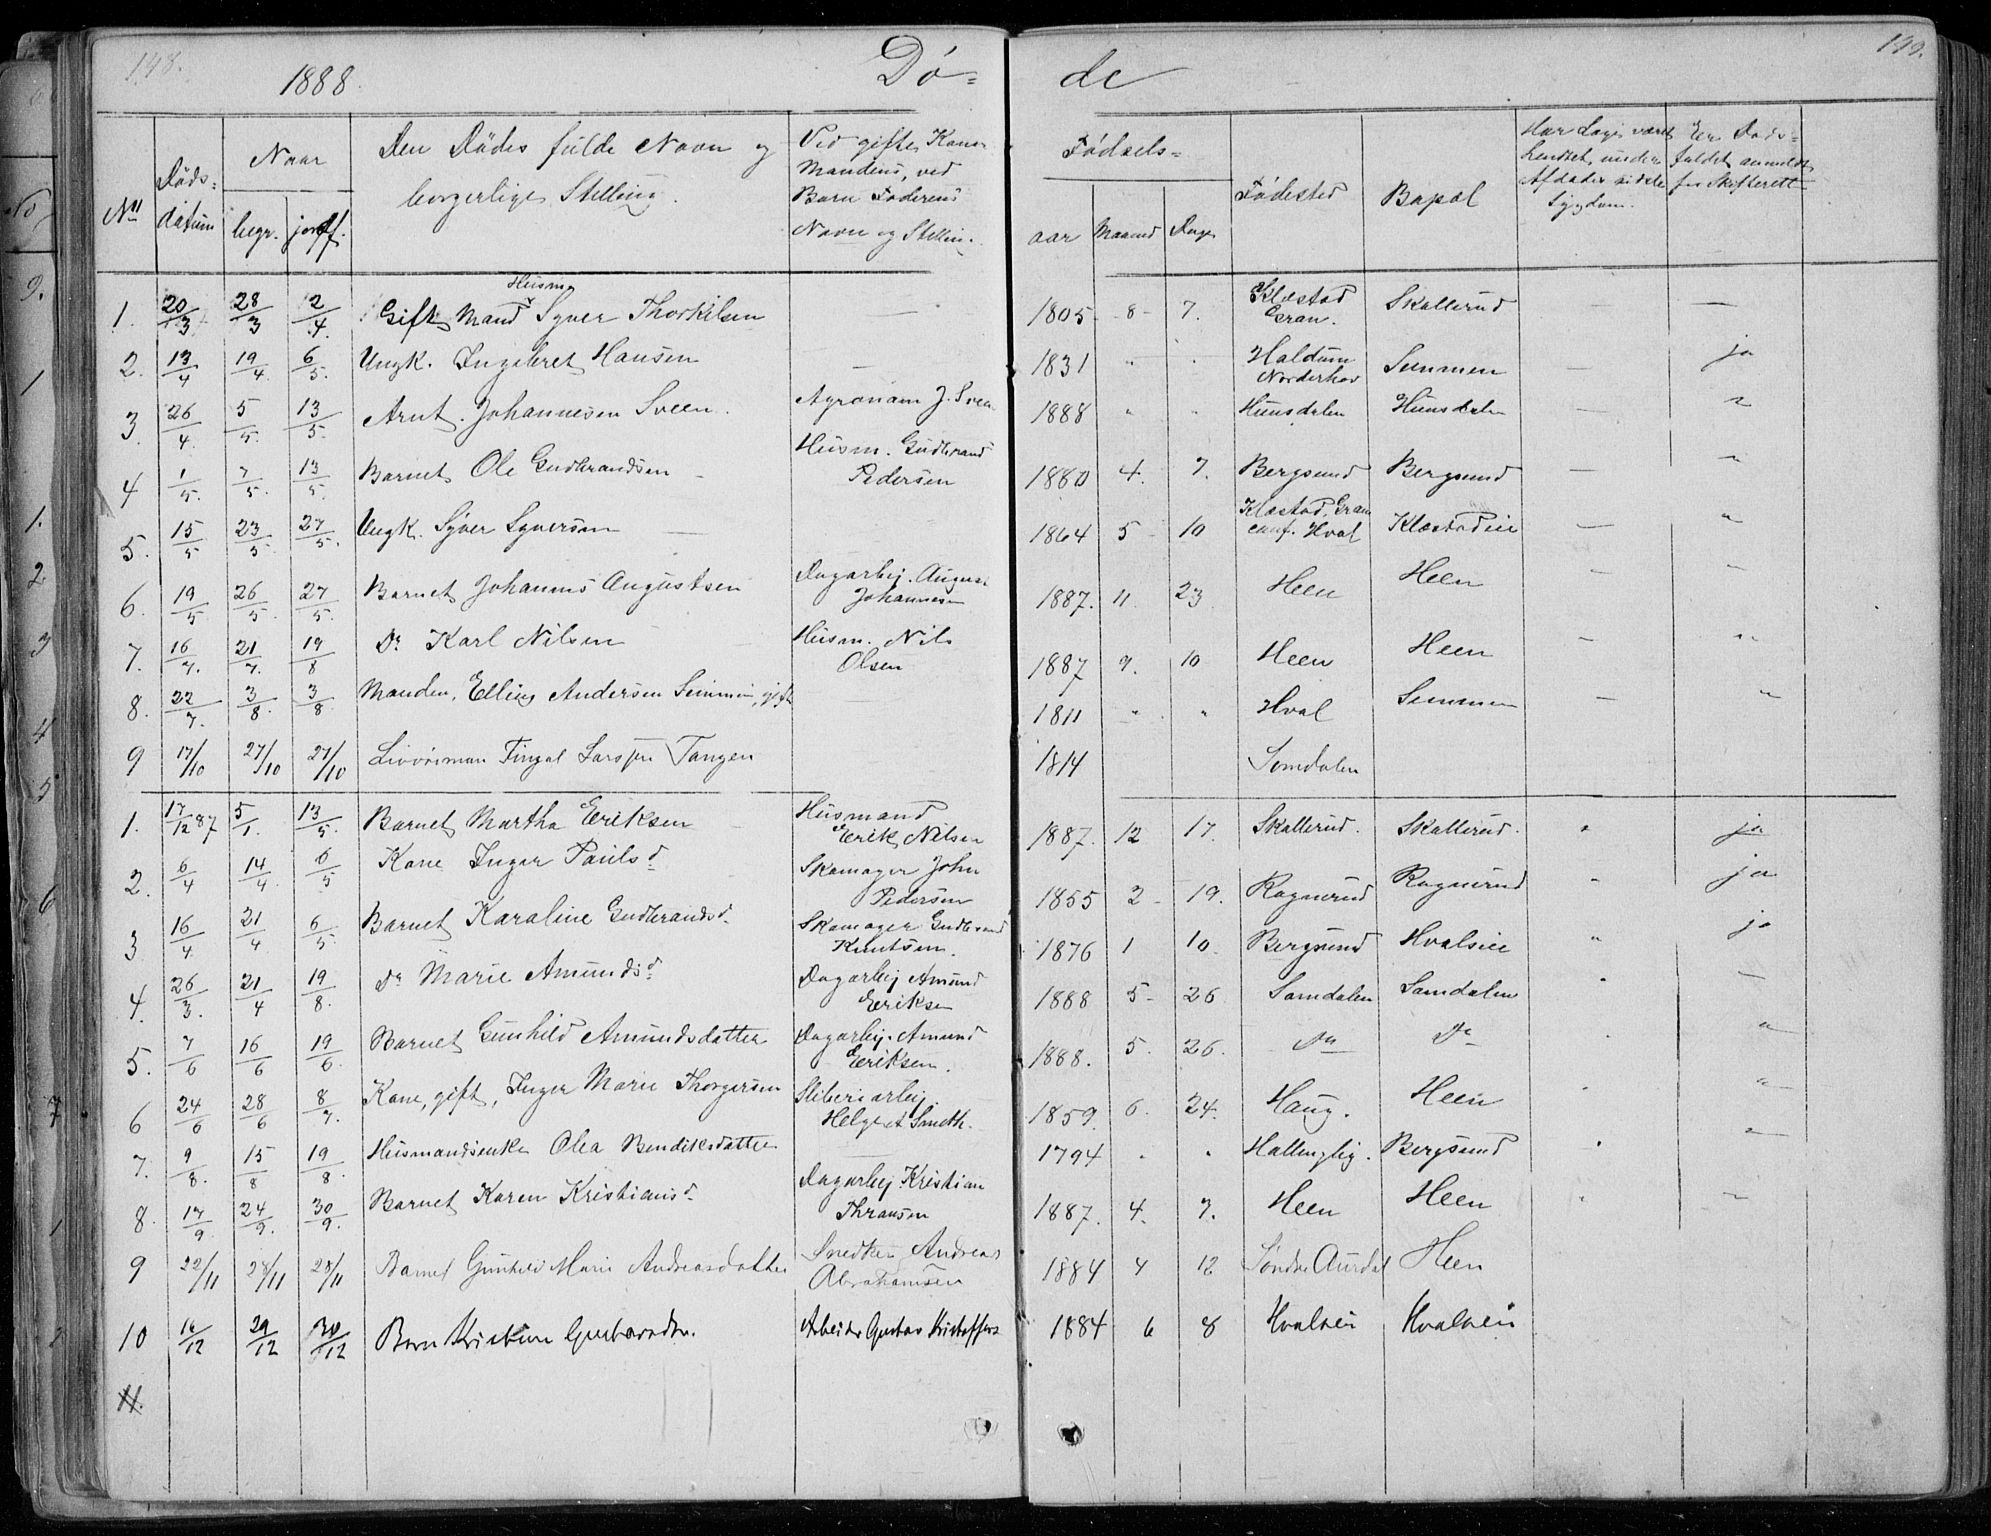 148.
1888.
Dö- de
149.
No
Döds- datum
Naar
begr. jordf.
Den Dödes fulde Navn og borgerlige Stilling.
Ved gifte Koner Mandens, ved Børn Faderens Navn og Stilling.
Fødsels-
aar Maaned Dage
Fødested
Bopæl
Har Læge været hentet under Afdødes sidste Sygdom.
Er Døds- faldet anmeldt for Skifterett
1. 20/3 28/3 2/4 Gift Mand Husm. Syver Thorkilsen — 1805 8 7. Klæstad Gran. Skallerud — —
2. 13/4 19/4 6/5 Ungk. Ingebret Hansen — 1831 " " Haldum Norderhov Semmen — ja
3. 26/4 5/5 13/5 Arnt Johannesen Sveen. Agronom J. Sveen 1888 " " Hunsdalen Hunsdalen — "
4 1/5 7/5 13/5 Barnet Ole Gudbrandsen Husm. Gudbrand Pedersen 1880 4. 7. Bergsund Bergsund — "
5. 15/5 23/5 27/5 Ungk. Syver Syversen — 1864 5 10 Klæstad, Gran conf. Hval Klæstadeie — "
6. 19/5 26/5 27/5 Barnet Johannes Augustsen Dagarbej. August Johannesen 1887. 11. 23 Heen Heen — "
7. 16/7 21/7 19/8 Do Karl Nilsen Husm. Nils Olsen 1887 9. 10 Heen Heen — "
8. 22/7 3/8 3/8 Manden, Elling Andersen Semmen, gift 1811 " " Hval Semmen — "
9 17/10 27/10 27/10 Livöreman Fingal Larssen Tangen 1814 Somdalen
1. 17/12 87 5/1 13/5 Barnet Martha Eriksen Husmand Erik Nilsen 1887. 12 17. Skallerud. Skallerud. " ja
2. 6/4 14/4 6/5 Kone Inger Paulsd. Skomager John Pedersen 1855 2 19. Ragnerud Ragnerud " ja
3. 16/4 21/4 6/5 Barnet Karaline Gudbrandsd. Skomager Gudbrand Knutsen. 1876 1 10. Bergsund Hvalseie " ja
4. 26/3 21/4 19/8 Do Marie Amundsd. Dagarbej Amund Eriksen 1888 5 26 Somdalen Somdalen " —
5. 7/6 16/6 19/6 Barnet Gunhild Amundsdatter Dagarbej. Amund Eriksen. 1888. 5. 26. Do Do "
6 24/6 28/6 8/7 Kone, gift, Inger Marie Thorgersen Sliberiarbej. Helget Smeth. 1859. 6. 24. Haug. Heen "
7. 9/8 15/8 19/8 Husmandsenke Olea Bendiksdatter — 1794 " " Hallingby. Bergsund "
8. 17/9 24/9 30/9 Barnet Karen Kristiansd. Dagarbej. Kristian Thransen 1887. 4. 7. Heen Heen "
9 22/11 28/11 28/11 Barnet Gunhild Marie Andreasdatter Snedker Andreas Abrahamsen 1884 4 12 Søndre Aurdal Heen
10 16/12 29/12 30/12 Barn Kristine Gustavsdtr. Arbeider Gustav Kristoffers 1884 6 8 Hvalseie Hvalseie
11.